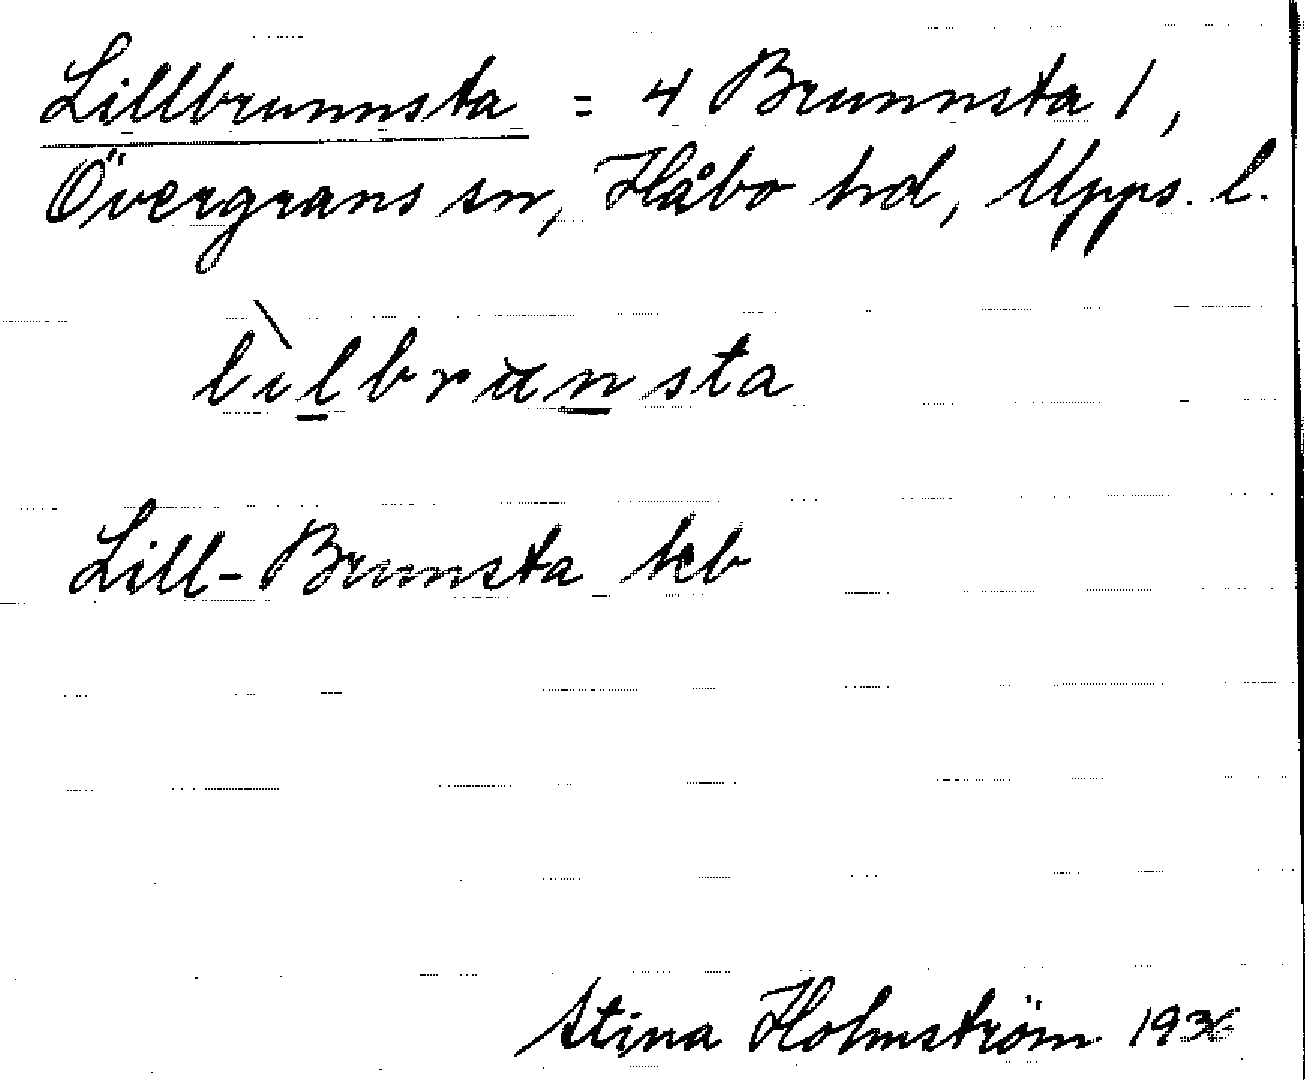 Lillbrunnsta = 4 Brunnsta 1,
Övergrans sn, Håbo hd, Upps. l.
lìlbrunsta
Lill-Brunsta hcb
Stina Holmström